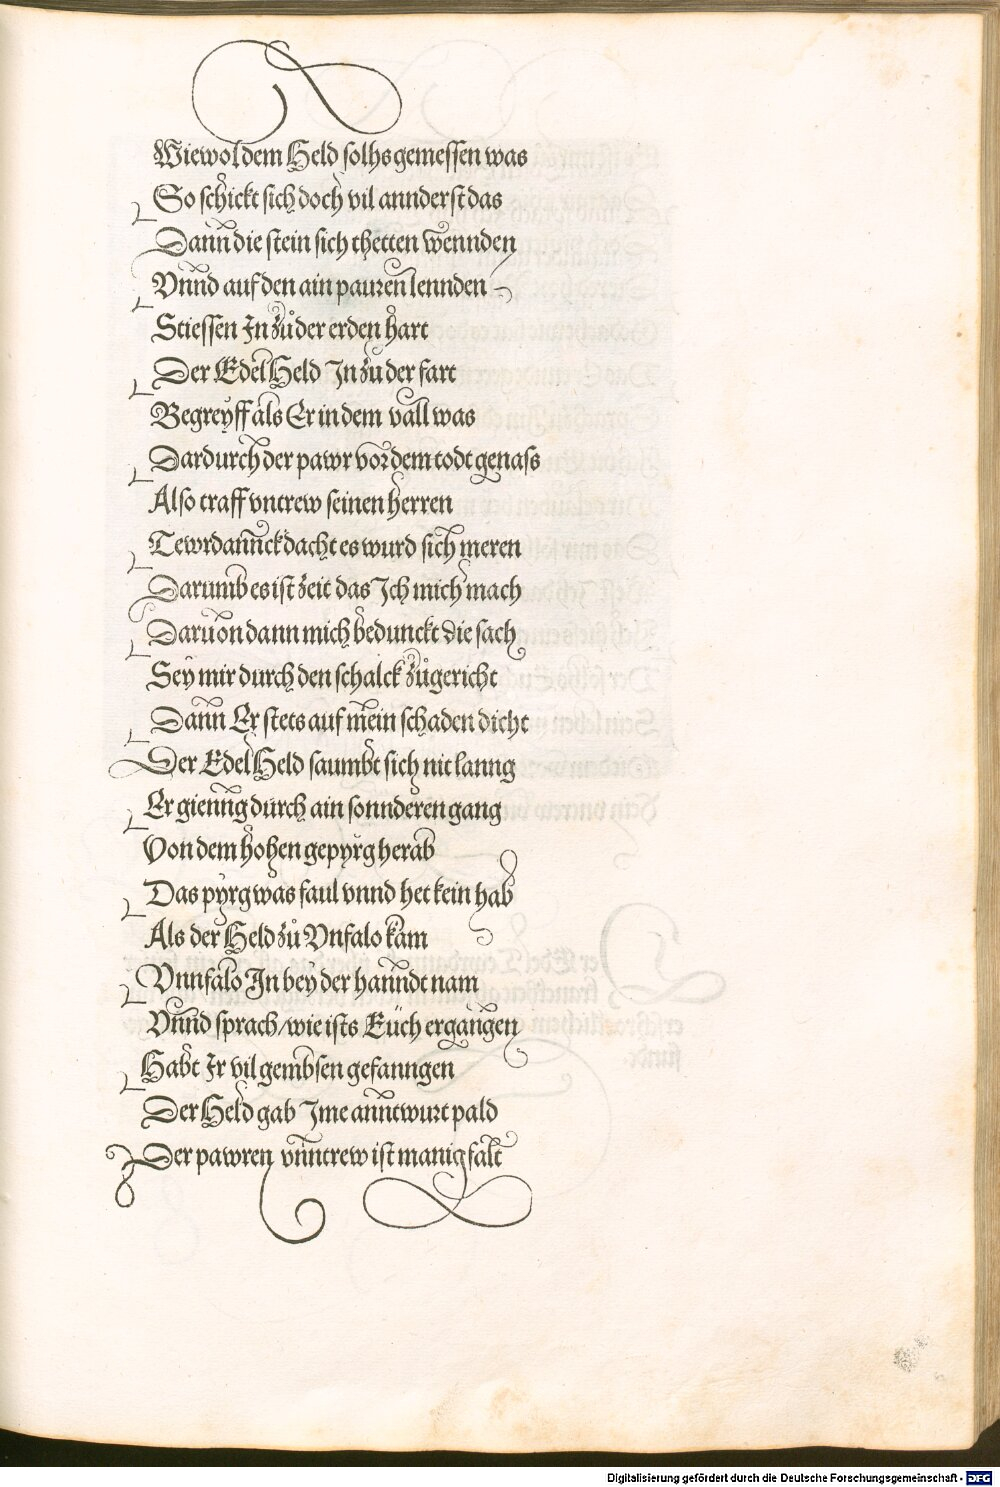 Wiewol dem Held solhs gemessen was
So schickt sich doch vil annderst das
Dann die stein sich thetten wennden
Vnnd auf den ain pauren lennden
Stiessen In zů der erden hart
Der Edel Held In zu der fart
Begreyff als Er in dem vall was
Dardurch der pawr vor dem todt genass
Also traff vntrew seinen herren
Tewrdannck dacht es wurd sich meren
Darumb es ist zeit das Ich mich mach
Daruon dann mich bedunckt die sach
Sey mir durch den schalck zůgericht
Dann Er stets auf mein schaden dicht
Der Edel Held saumbt sich nit lanng
Er gienng durch ain sonnderen gang
Von dem hohen gepyrg herab
Das pyrg was faul vnnd het kein hab
Als der Held zů Vnfalo kam
Vnnfalo In bey der hanndt nam
Vnnd sprach/wie ists Eüch ergangen
Habt Ir vil gembsen gefanngen
Der Held gab Ime anntwurt pald
Der pawren vnntrew ist manigfalt
Digitalisierung gefördert durch die Deutsche Forschungsgemeinschaft - DFG